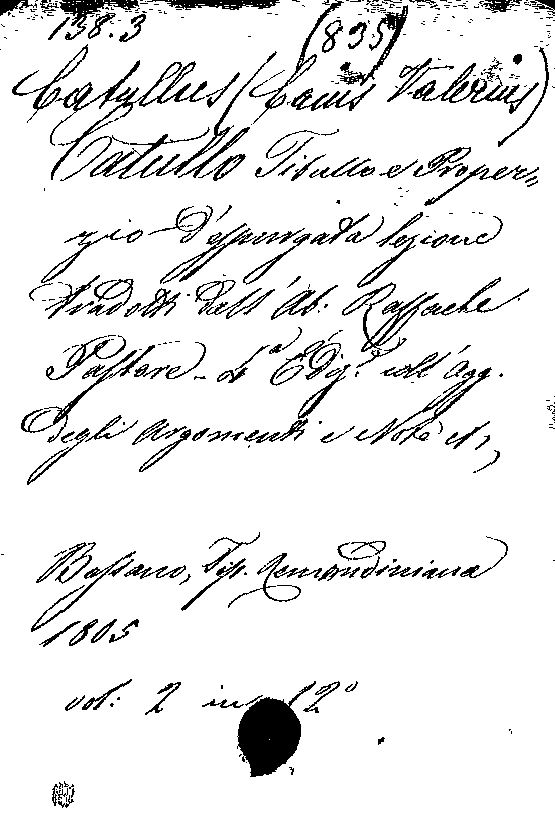 138.3 (835)
Catullus (Caius Valerius)
Catullo Tibullo e Proper=
zio d'espurgata lezione
tradotti dall' Ab. Raffaele
Pastore - 4ª Ediz.e coll' Agg.
degli Argomenti e Note
Bassano, Tip. Remondiniana
1805
vol: 2 in 12º